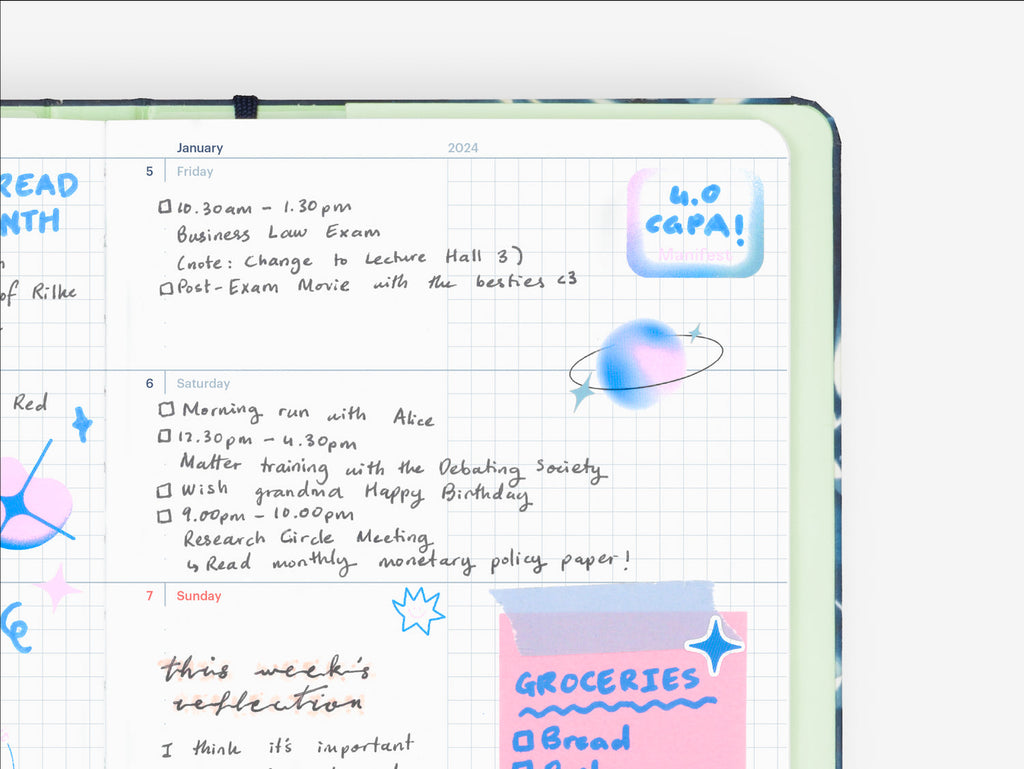 January 2024
READ
NTH
of Rilke
Red
5 Friday
10.30am - 1.30pm
Business Law Exam
(note: Change to Lecture Hall 3)
Post-Exam Movie with the besties <3
4.0
CGPA!
Manifest
6 Saturday
Morning run with Alice
12.30pm - 4.30pm
Matter training with the Debating Society
Wish grandma Happy Birthday
9.00pm - 10.00pm
Research Circle Meeting
↳ Read monthly monetary policy paper!
7 Sunday
this week's
reflection
I think it's important
GROCERIES
Bread